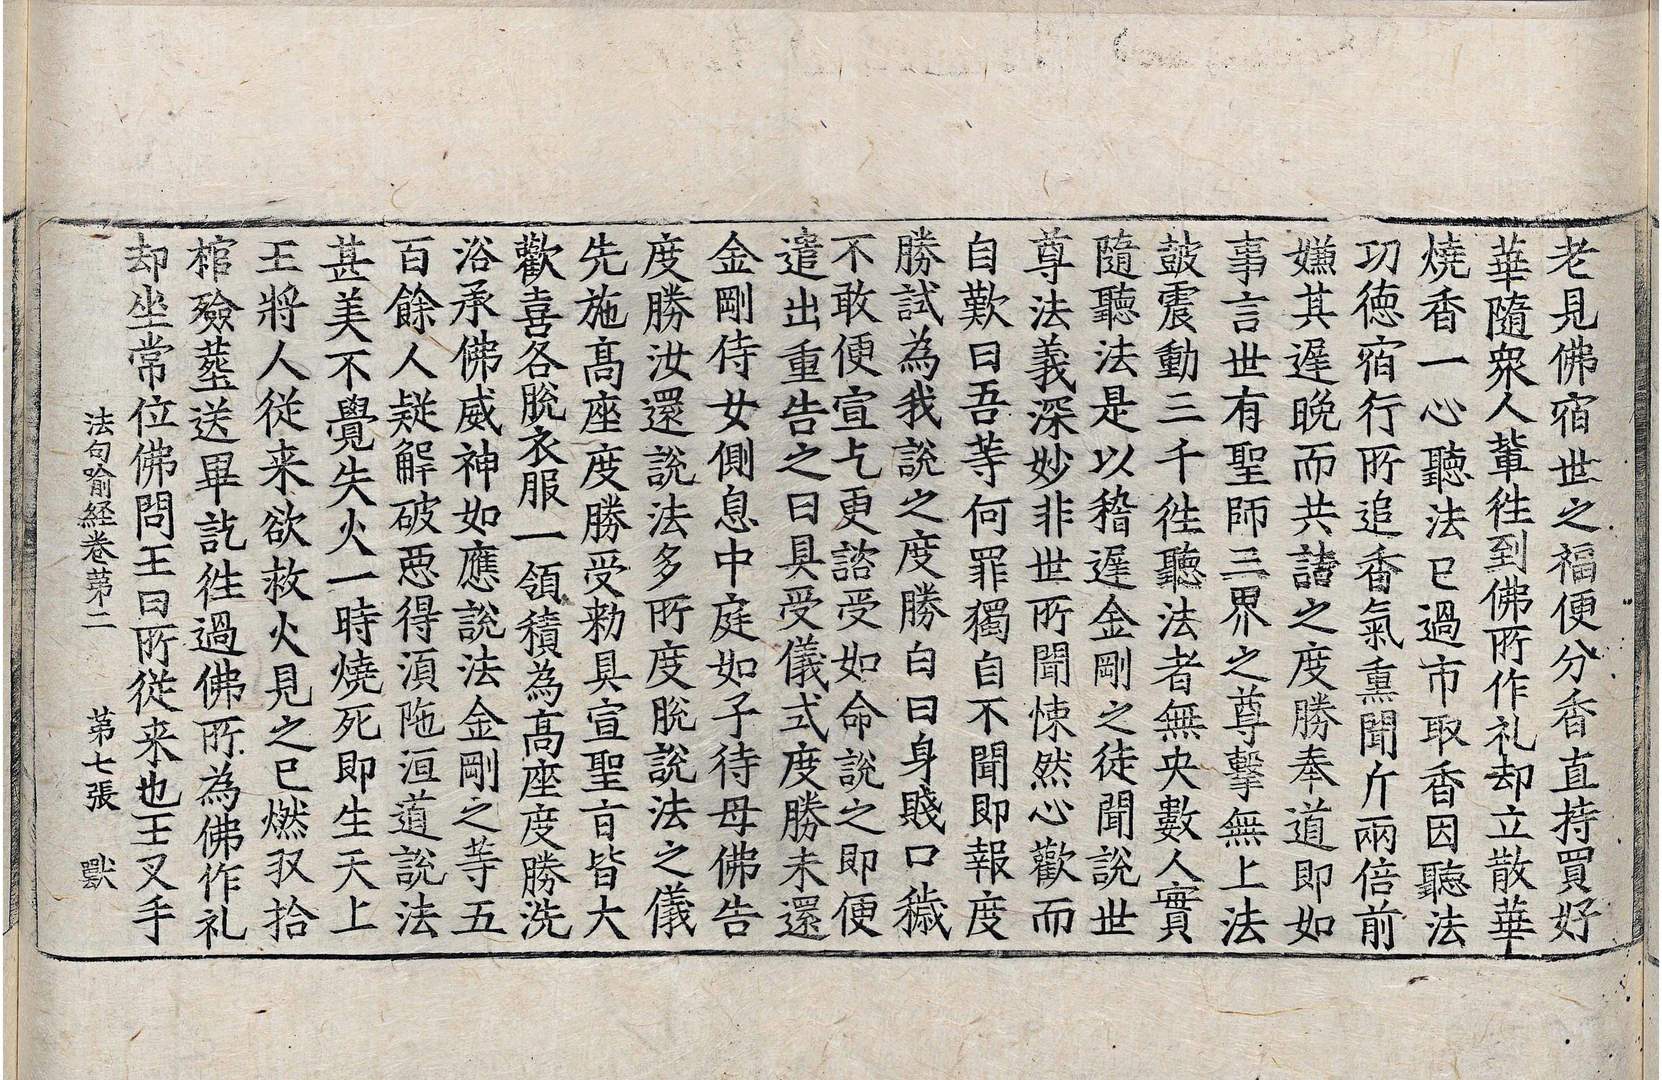 老見佛宿世之福便分香直持買好
華隨衆人輩往到佛所作礼却立散華
燒香一心聽法已過市取香因聽法
功德宿行所追香氣熏聞斤兩倍前
嫌其遲晚而共請之度勝奉道即如
事言世有聖師三界之尊擊無上法
皷震動三千往聽法者無央數人實
隨聽法是以稽遲金剛之徒聞說世
尊法義深妙非世所聞悚然心歡而
自歎曰吾等何罪獨自不聞即報度
勝試為我說之度勝白曰身賤口穢
不敢便宣乞更諮受如命說之即便
遣出重告之曰具受儀式度勝未還
金剛侍女側息中庭如子待母佛告
度勝汝還說法多所度脫說法之儀
先施髙座度勝受勑具宣聖旨皆大
歡喜各脫衣服一領積為髙座度勝洗
浴承佛威神如應說法金剛之等五
百餘人疑解破惡得湏陁洹道說法
甚美不覺失火一時燒死即生天上
王將人従来欲救火見之已燃収拾
棺殮葬送畢訖往過佛所為佛作礼
却坐常位佛問王曰所從来也王叉手
法句喻経卷第二 第七張 獸